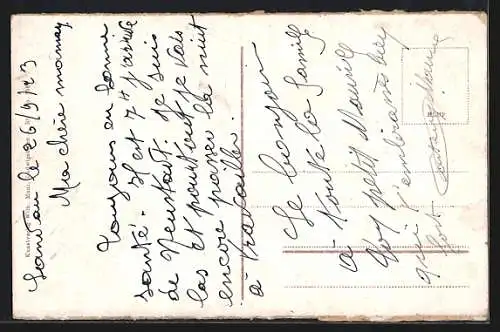 le 26/9/23
Ma chère maman
toujours en bonne
santé. Il est 7h j'arrive
de Neustadt. Je suis
las et pourtant je vais
encore passer la nuit
à travailler.
Le bonjour
à toute la famille
Ton petit Maurice
qui t'embrasse bien
fort.